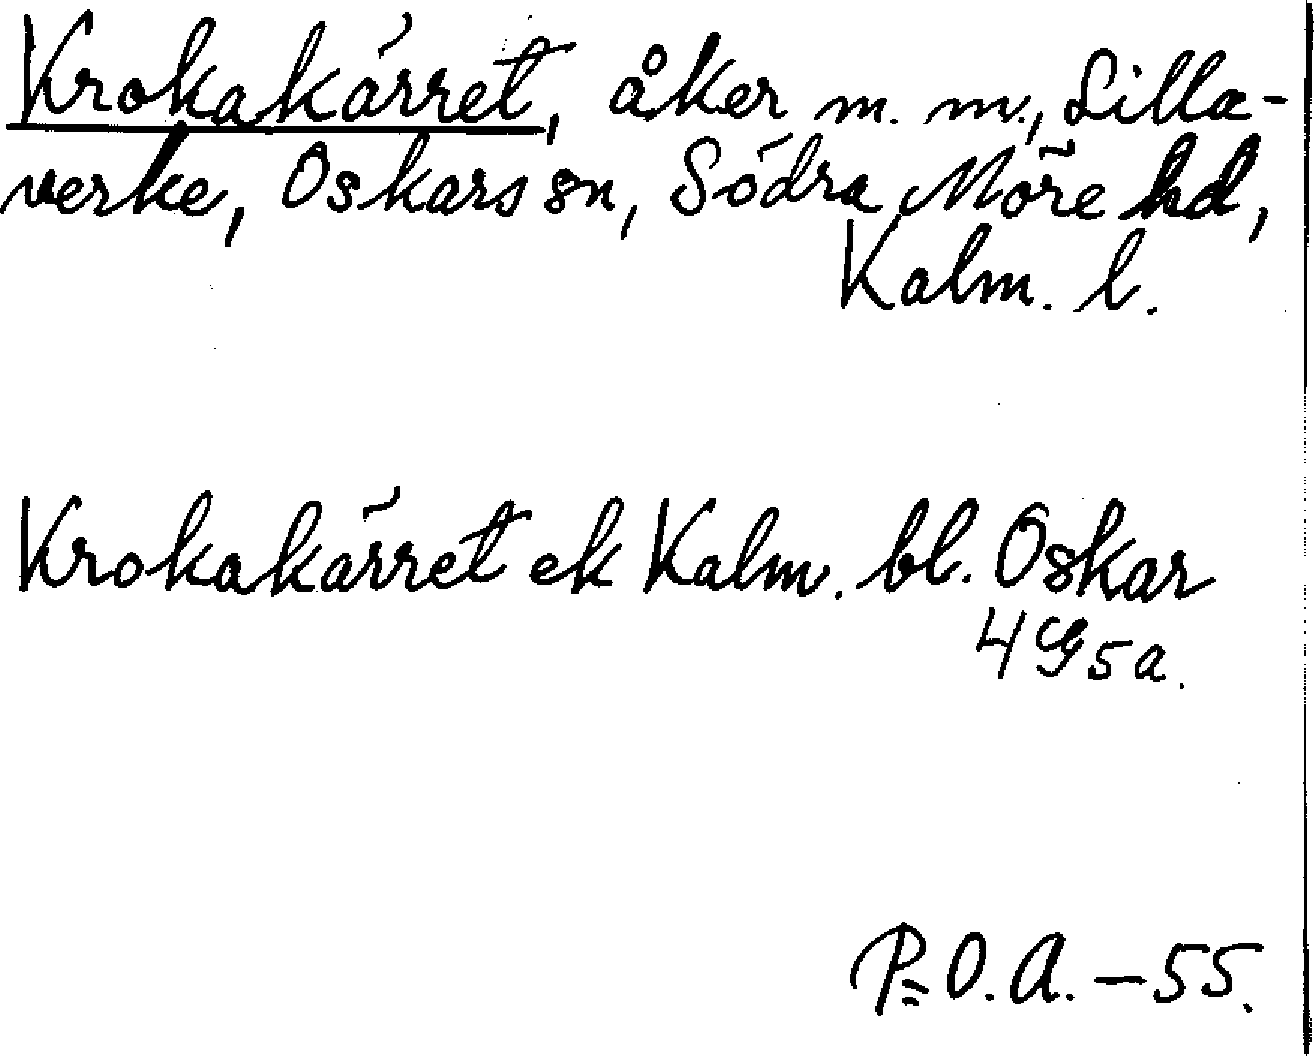 Krokakärret, åker m. m., Lilla-
verke, Oskars sn, Södra Möre hd,
Kalm. l.
Krokakärret ek Kalm. bl. Oskar
4 G 5 a.
P. O. A. – 55.